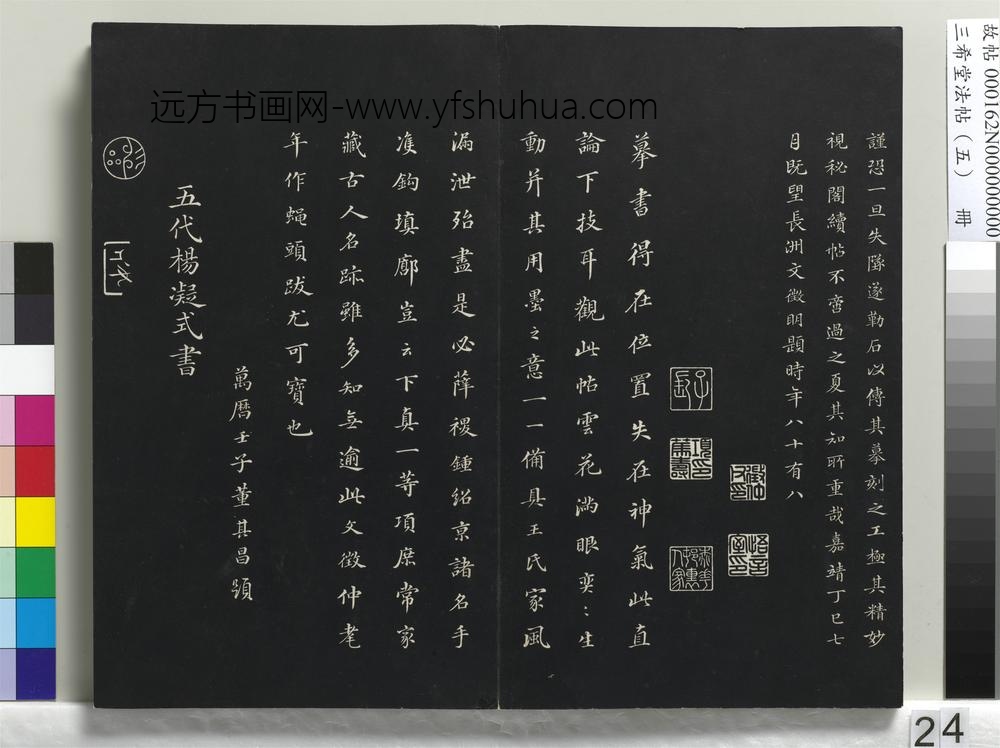 謹恐一旦失墜遂勒石以傳其摹刻之工極其精妙
視秘閣續帖不啻過之夏其知所重哉嘉靖丁巳七
月既望長洲文徵明題時年八十有八
摹書得在位置失在神氣此直
論下技耳觀此帖雲花滿眼奕〻生
動并其用墨之意一一備具王氏家風
漏泄殆盡是必薛稷鍾紹京諸名手
准鉤填廓豈云下真一等項庶常家
藏古人名跡雖多知無逾此文徵仲耄
年作蝇頭跋尤可寶也
萬曆壬子董其昌題
五代楊凝式書
远方书画网-www.yfshuhua.com
故帖000162N000000000
三希堂法帖（五） 冊
24